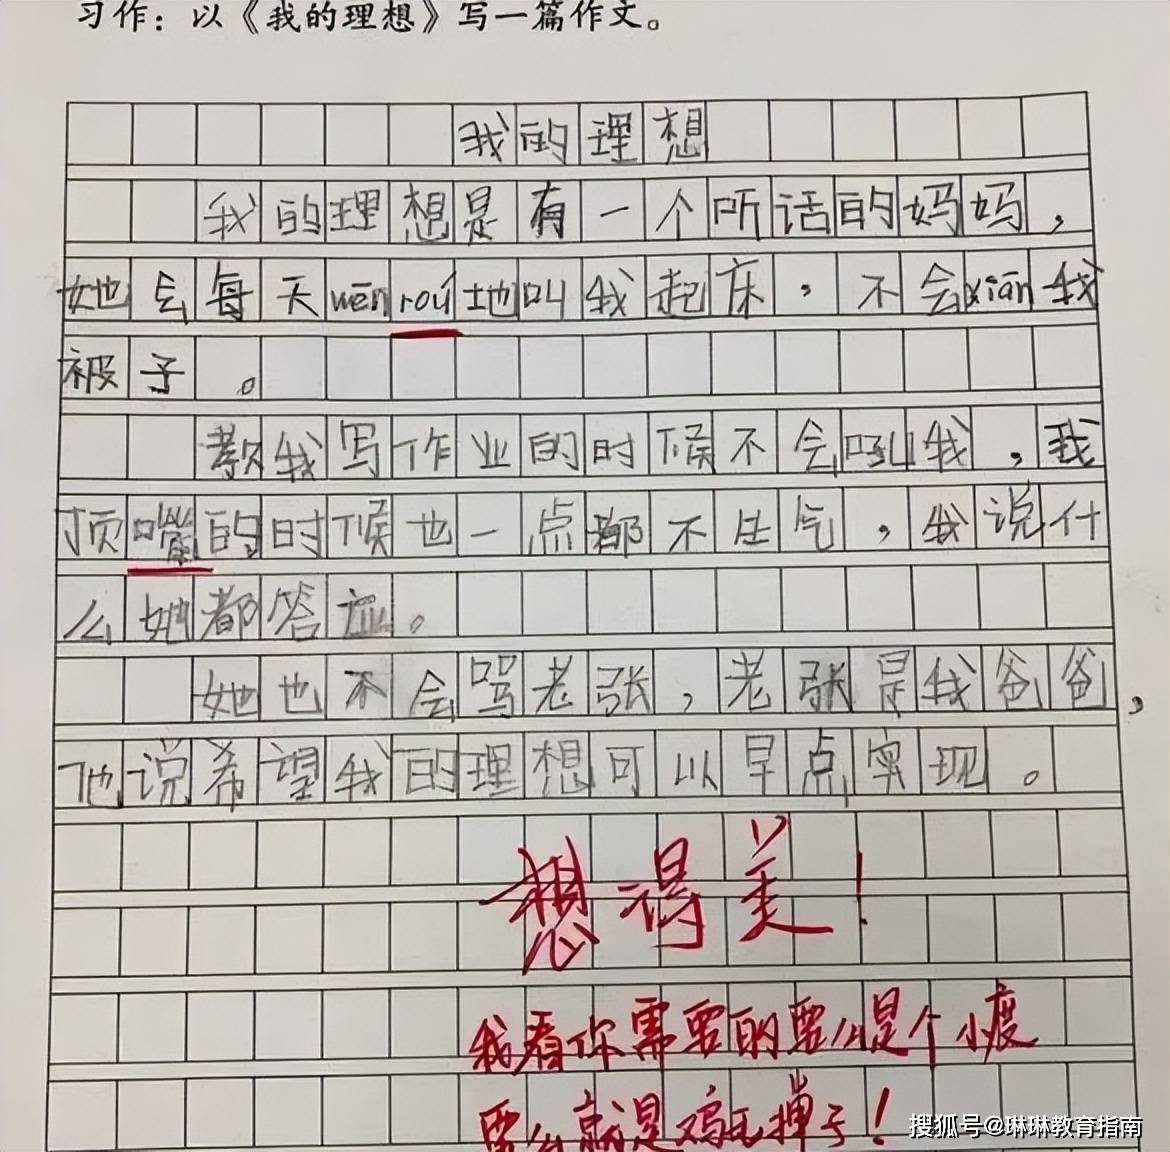 习作：以《我的理想》写一篇作文。
我的理想
我的理想是有一个听话的妈妈，
她会每天wēn roú地叫我起床，不会xiān我
被子。
教我写作业的时候不会吼我，我
顶嘴的时候也一点都不生气，我说什
么她都答应。
她也不会骂老张，老张是我爸爸，
他说希望我的理想可以早点实现。
想得美！
我看你需要的要么是个小度
要么就是鸡毛掸子！
搜狐号@琳琳教育指南